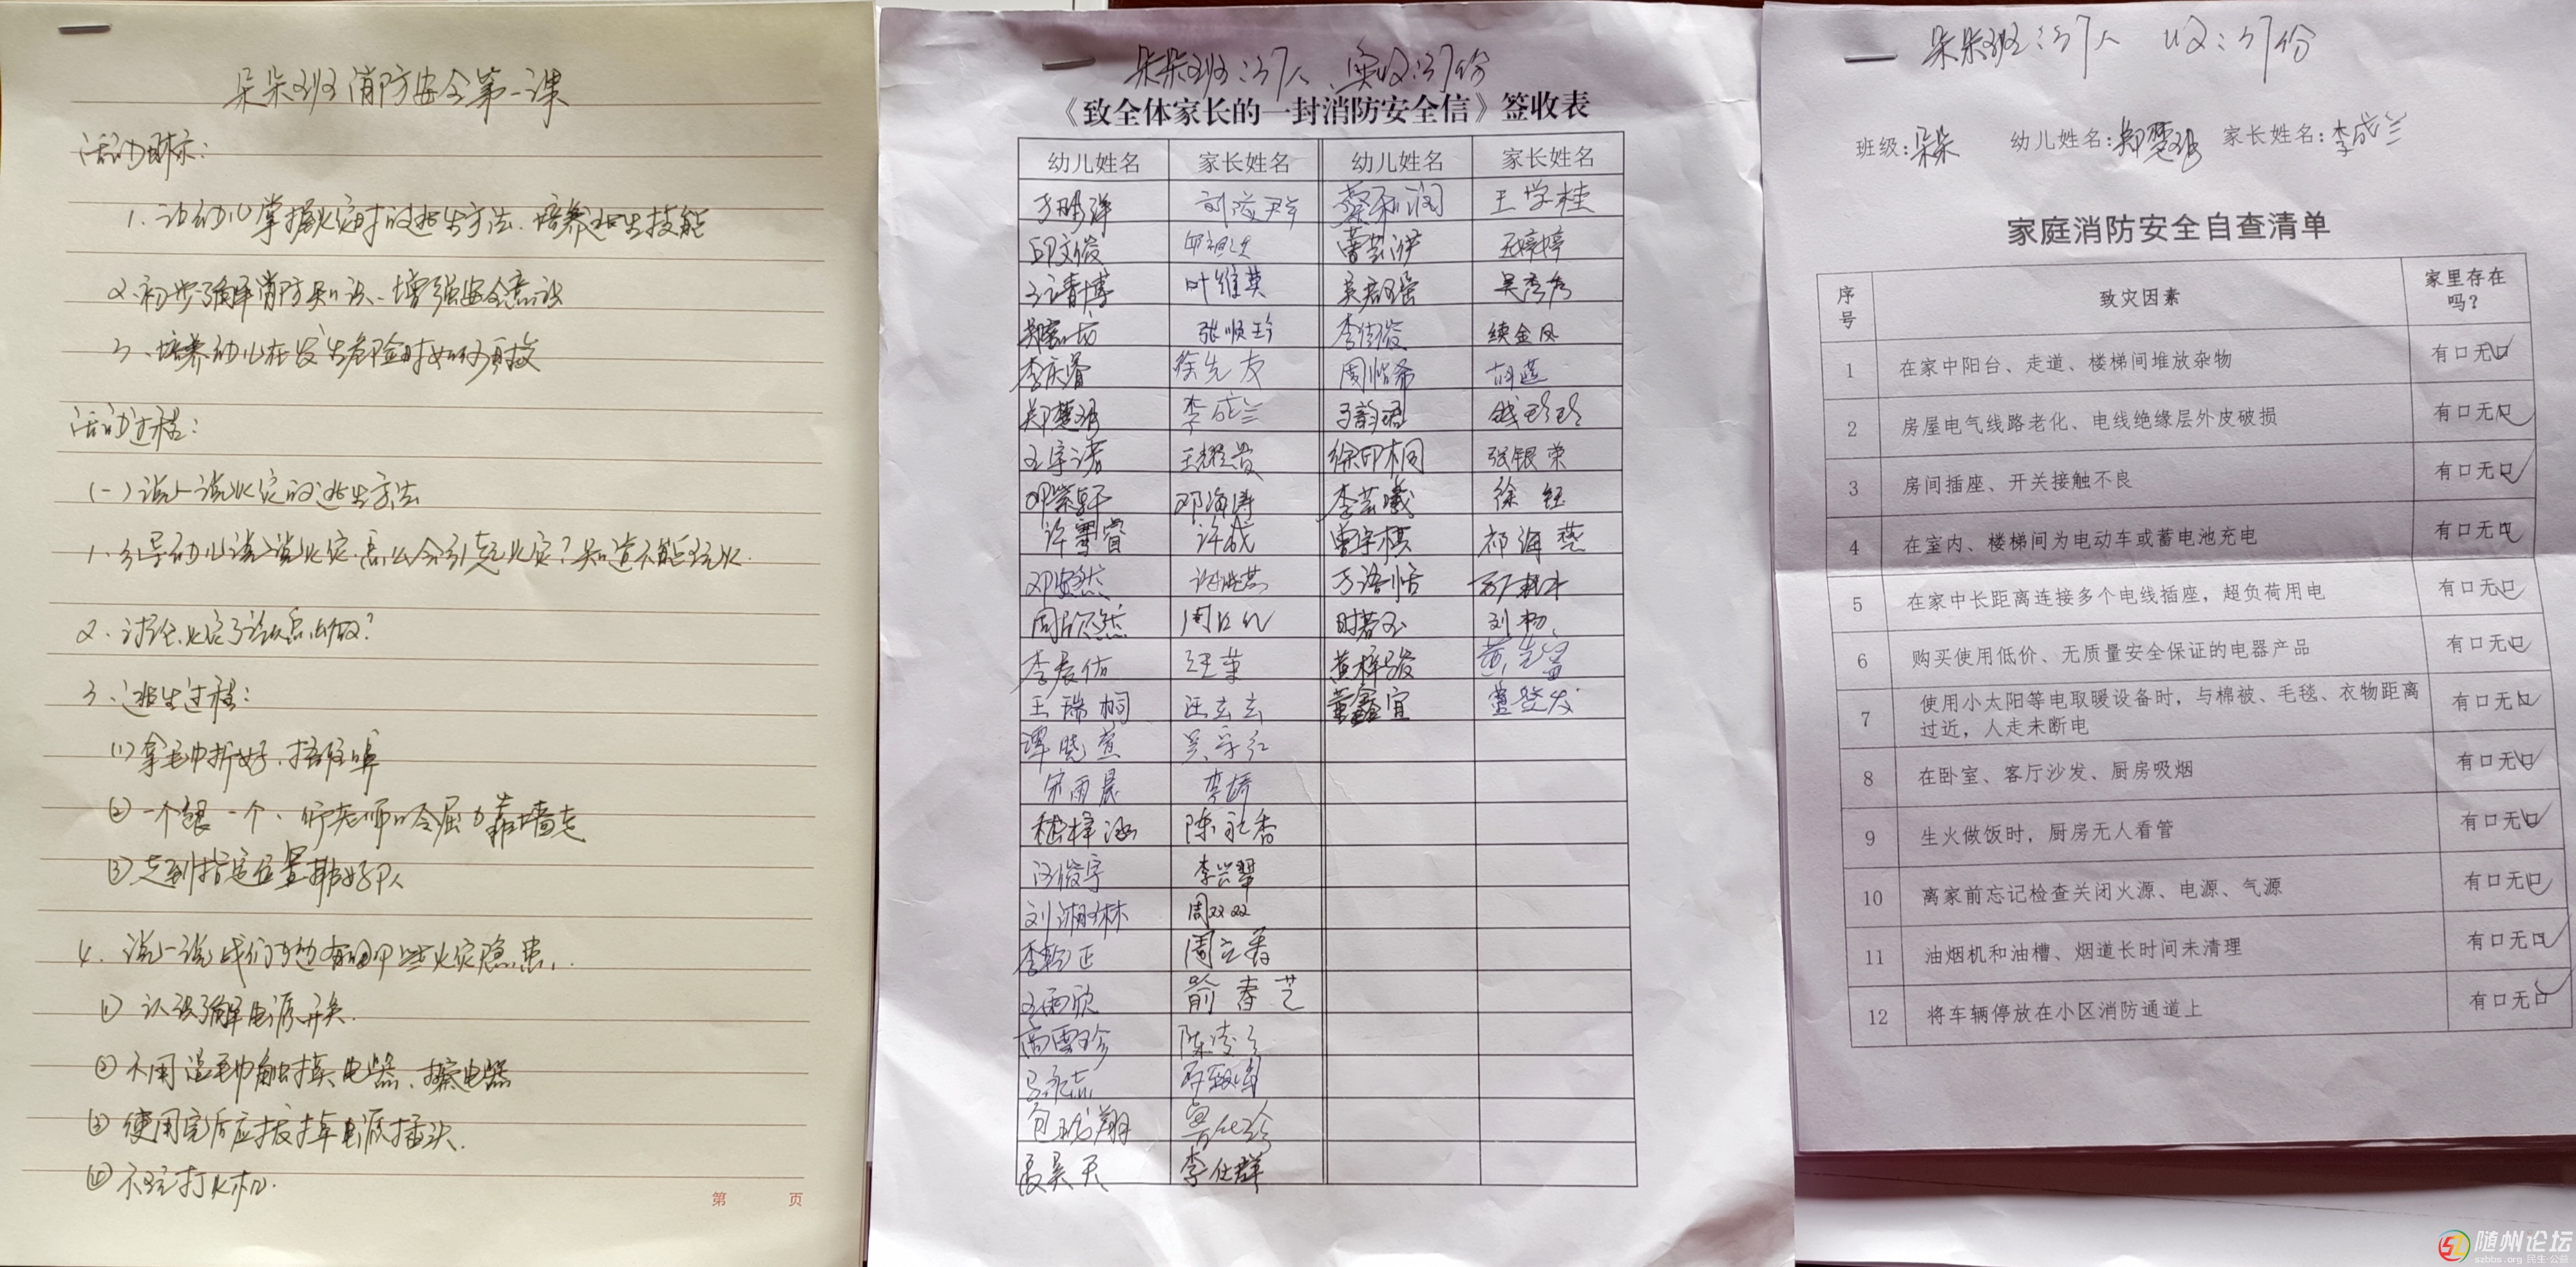 朵朵班消防安全第一课
活动目标：
1、让幼儿掌握火灾时的逃生方法、培养逃生技能
2、初步了解消防知识、增强安全意识
3、培养幼儿在发生危险时如何自救
活动过程：
(一)说一说火灾的逃生方法
1、引导幼儿说说火灾,怎么会引起火灾?知道不能玩火.
2、讨论:火灾了该怎么做?
3、逃生过程：
(1)拿毛巾折好、捂住口鼻
②一个跟一个、听老师口令屈身靠墙走
③走到指定位置排好队
4、说一说我们身边有哪些火灾隐患.
① 认识了解电源开关.
②不用湿毛巾触摸电器、擦电器
③使用完后应拔掉电源插头.
④不玩打火机.
第 页
朵朵班:37人 实收:37份
《致全体家长的一封消防安全信》签收表
幼儿姓名 家长姓名 幼儿姓名 家长姓名
王学桂
邱文俊
叶维英
张顺珍 李佳俊 续金凤
李庆睿 徐先友 周怡希 胡莲
郑楚玥 李成兰 于韵珺 钱珍珍
王宇诺 徐印桐 张银荣
邓紫轩 邓海涛 李芸曦 徐钰
许成 曾宇棋 祁海燕
邓安然 于语恬
周欣然 时若玉 刘杨
李辰佑 汪苹 黄梓骏
王瑞桐 汪云云 董鑫宜
谭晓萱 吴学红
宋雨晨 李娇
陈礼香
汪俊宇 李兴翠
刘湘林 周双双
李乾正 周立春
王雨欣 俞春芝
高雪珍 陈凌云
李仕群
朵朵班:37人 收:37份
班级:朵朵 幼儿姓名:郑楚玥 家长姓名:李成兰
家庭消防安全自查清单
序号 致灾因素 家里存在吗？
1 在家中阳台、走道、楼梯间堆放杂物 有口无口
2 房屋电气线路老化、电线绝缘层外皮破损 有口无口
3 房间插座、开关接触不良 有口无口
4 在室内、楼梯间为电动车或蓄电池充电 有口无口
5 在家中长距离连接多个电线插座，超负荷用电 有口无口
6 购买使用低价、无质量安全保证的电器产品 有口无口
7 使用小太阳等电取暖设备时，与棉被、毛毯、衣物距离
过近，人走未断电 有口无口
8 在卧室、客厅沙发、厨房吸烟 有口无口
9 生火做饭时，厨房无人看管 有口无口
10 离家前忘记检查关闭火源、电源、气源 有口无口
11 油烟机和油槽、烟道长时间未清理 有口无口
12 将车辆停放在小区消防通道上 有口无口
随州论坛
szbbs.org 民生·公益